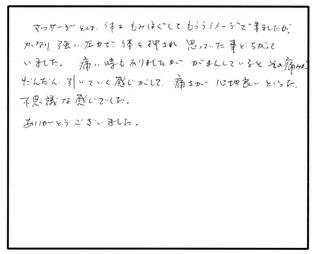 マッサージとは、体をもみほぐしてもらうイメージで来ましたが、
かなり強い圧力で体を押され、思っていた事とちがって
いました。痛い時もありましたが がまんしていると その痛みが
だんだん引いていく感じがして、痛さが心地良いといった
不思議な感じでした。
ありがとうございました。